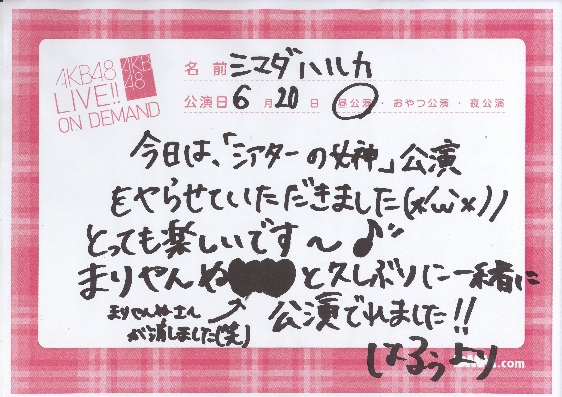 AKB48
LIVE!!
ON DEMAND
AKB
48
名前 シマダハルカ
公演日 6月20日 昼公演・おやつ公演・夜公演
今日は、「シアターの女神」公演
をやらせていただきました(*'ω'*))
とっても楽しいです〜♪
まりやんぬ と久しぶりに一緒に
まりやんぬさん
が消しました(笑)
公演でれました!!
はるぅより
.com